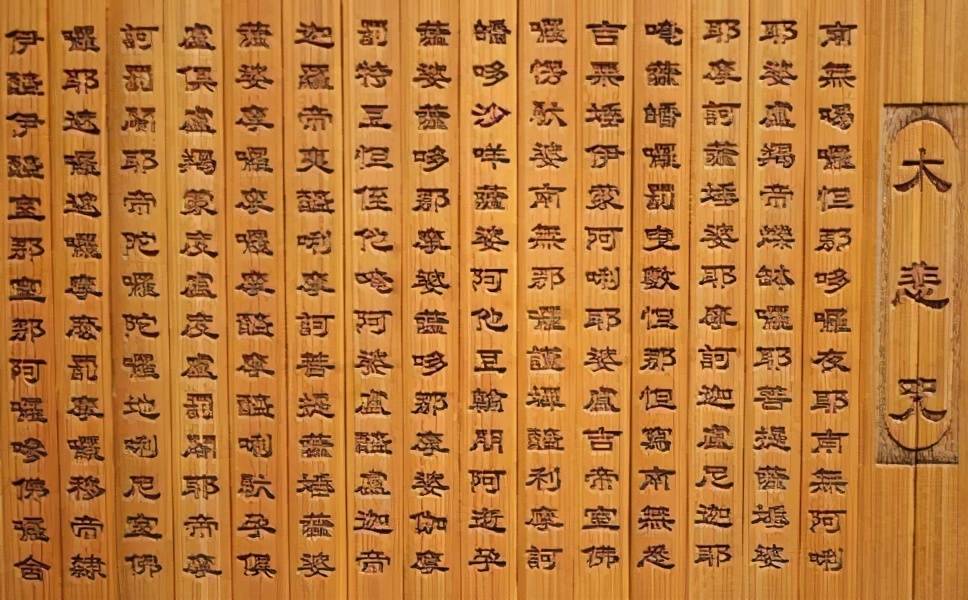 大悲咒
南無喝囉怛那哆囉夜耶南無阿唎
耶婆盧羯帝爍缽囉耶菩提薩埵婆
耶摩訶薩埵婆耶摩訶迦盧尼迦耶
唵薩皤囉罰曳數怛那怛寫南無悉
吉栗埵伊蒙阿唎耶婆盧吉帝室佛
囉楞馱婆南無那囉謹墀醯利摩訶
皤哆沙咩薩婆阿他豆輸朋阿逝孕
薩婆薩哆那摩婆薩哆那摩婆伽摩
罰特豆怛侄他唵阿婆盧醯盧迦帝
迦羅帝夷醯唎摩訶菩提薩埵薩婆
薩婆摩囉摩囉摩醯摩醯唎馱孕俱
盧俱盧羯蒙度盧度盧罰闍耶帝摩
訶罰闍耶帝陀囉陀囉地唎尼室佛
囉耶遮囉遮囉摩麼罰摩囉穆帝隸
伊醯伊醯室那室那阿囉嘇佛囉舍